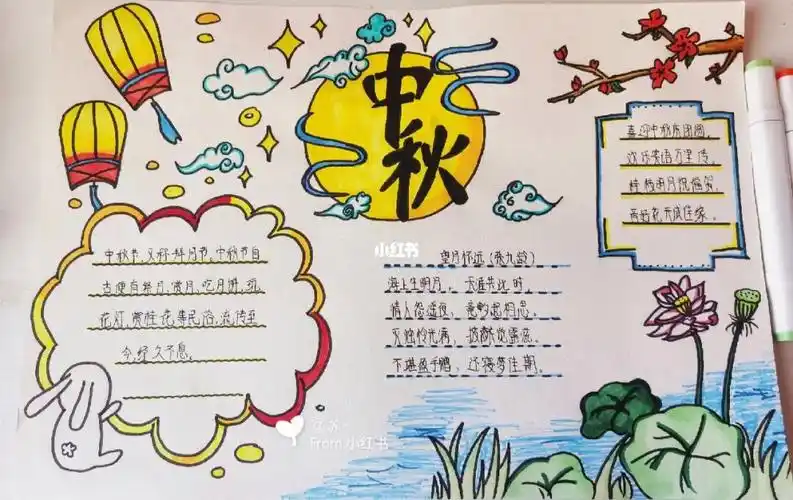 中秋
中秋节,又称拜月节,中秋节自
古便有祭月、赏月、吃月饼、玩
花灯、赏桂花等民俗,流传至
今,经久不息。
小红书
望月怀远(张九龄)
海上生明月,天涯共此时。
情人怨遥夜,竟夕起相思。
灭烛怜光满,披衣觉露滋。
不堪盈手赠,还寝梦佳期。
喜迎中秋庆团圆,
欢乐笑语万里传。
花开成佳缘。
From 小红书